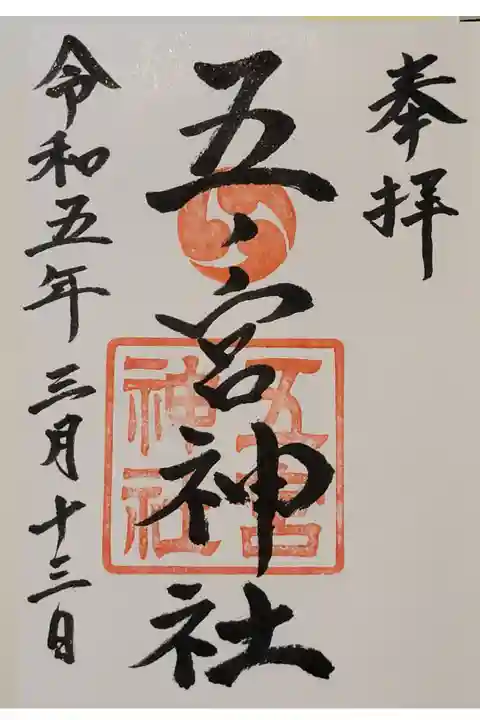 奉拝
五、宮神社
五宮
神社
令和五年三月十三日